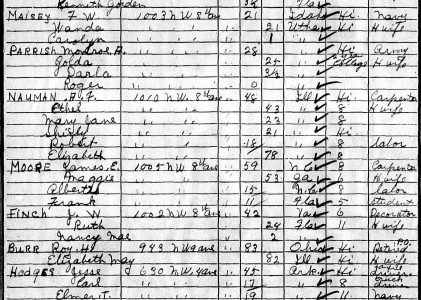 Kenneth Gorden 32 Fla
MAISEY, F W 1003 N W 8th ave 21 Idaho Hi. Navy
Wanda " " " 21 Utha Hi H wife
Carolyn " " " 1 " "
PARRISH Monroe A. " " " 28 " " Hi Army
Golda " " " 24 " " College H wife
Darla " " " 3/12 " "
Roger " " " 0 " "
NAUMAN A. F. 1010 N W. 8th ave 48 Ill Hi. Carpenter
Ethel " " " 43 " " 8 H wife
Mary Jane " " " 23 " " 8
Shirly " " " 21 " " Hi.
Robert " " " 18 " " 8 labor
Elizabeth " " " 78 " " 8
MOORE James, E. 1005 N W 8th ave 59 N C 8 Carpenter
Maggie " " " 53 Ga 6 H wife
Alberta " " " 15 N.C. 8 labor
Frank " " " 11 Fla 5 student
FINCH J. W 1002 N W 8th ave 42 Va 6 Decorator
Ruth " " " 24 Fla 11 H wife
Nancy Mae " " " 2 "
BURR Roy H. 943 N W 9 ave 83 Ohio Hi Retired P.O.
Elizabeth May 82 Ill Hi H wife
HODGES Jesse 630 N W. 4 ave 45 Ark Hi driver
Carl " " " 17 " " 8 truck driver
Elmer T. " " " 19 " " 11 navy